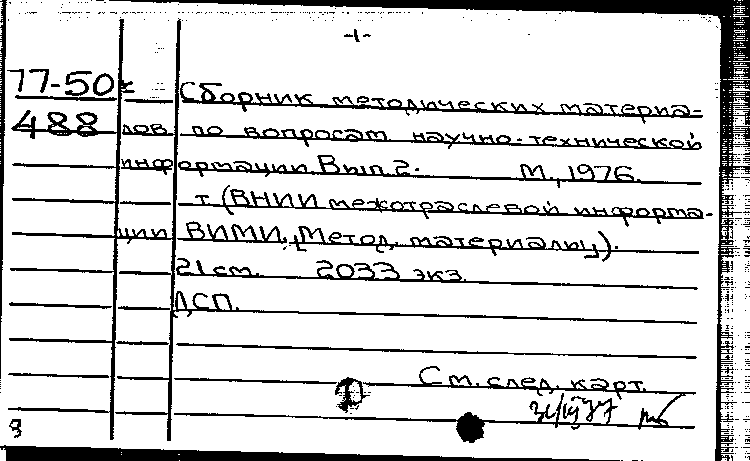 -1-
77-50
488
Сборник методических материа-
лов по вопросам научно-технической
информации. Вып 2. М., 1976.
т (ВНИИ межотраслевой информа-
ции ВИМИ. Метод. материалы).
21 см. 2033 экз.
ДСП.
См. след. карт.